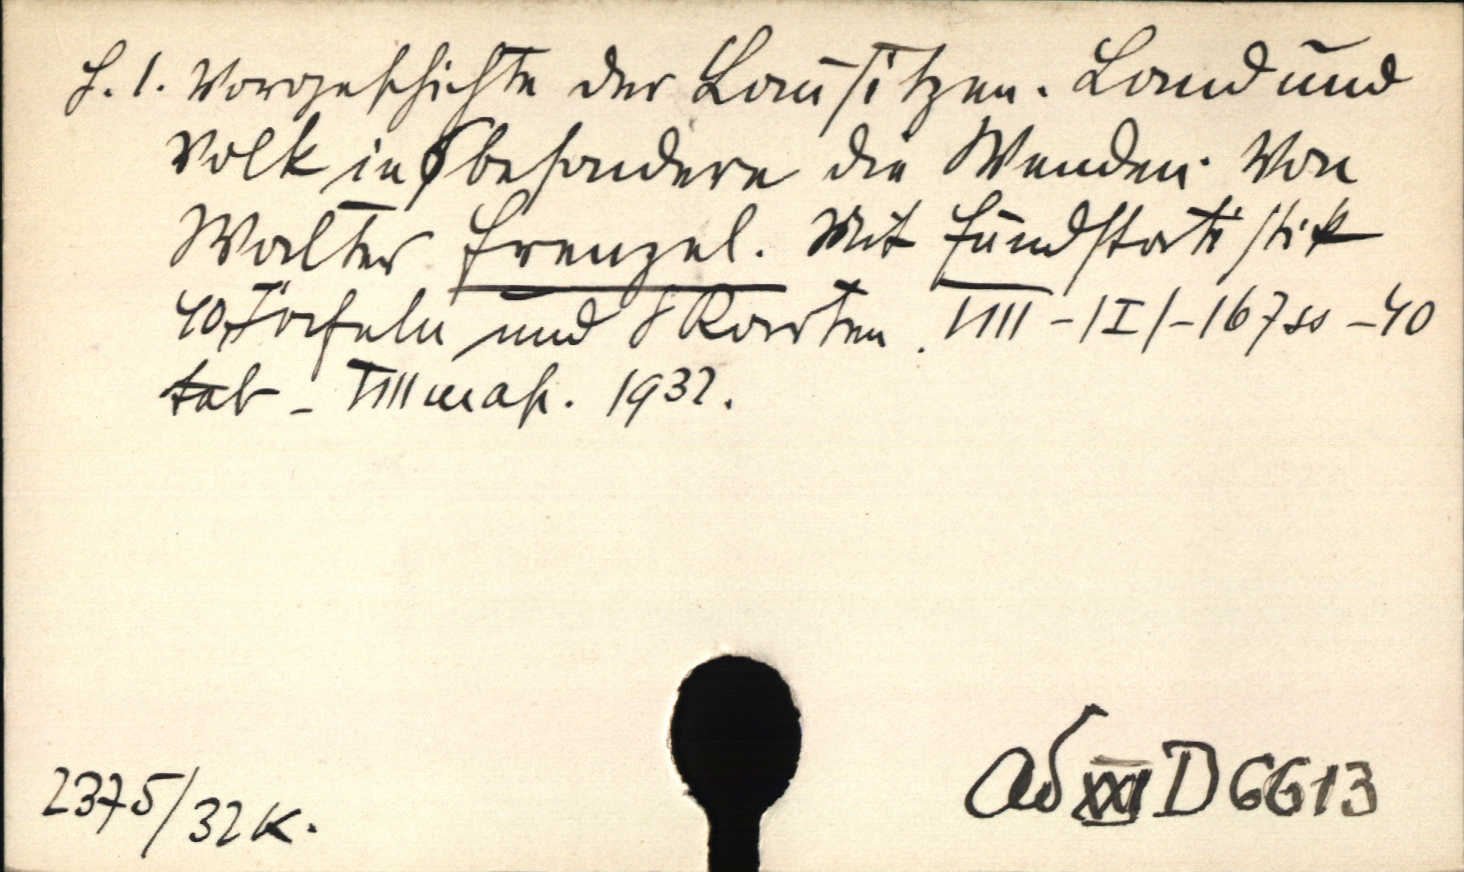 H. 1. Vorgeschichte der Lausitzen. Land und
Volk insbesondere die Wenden. Von
Walter Frenzel. Mit Fundstatistik
40 Tafeln und 8 Karten. VIII – I/–167 ss – 40
tab – VIII map. 1932.
2375/32 K.
ad XXI D 6613